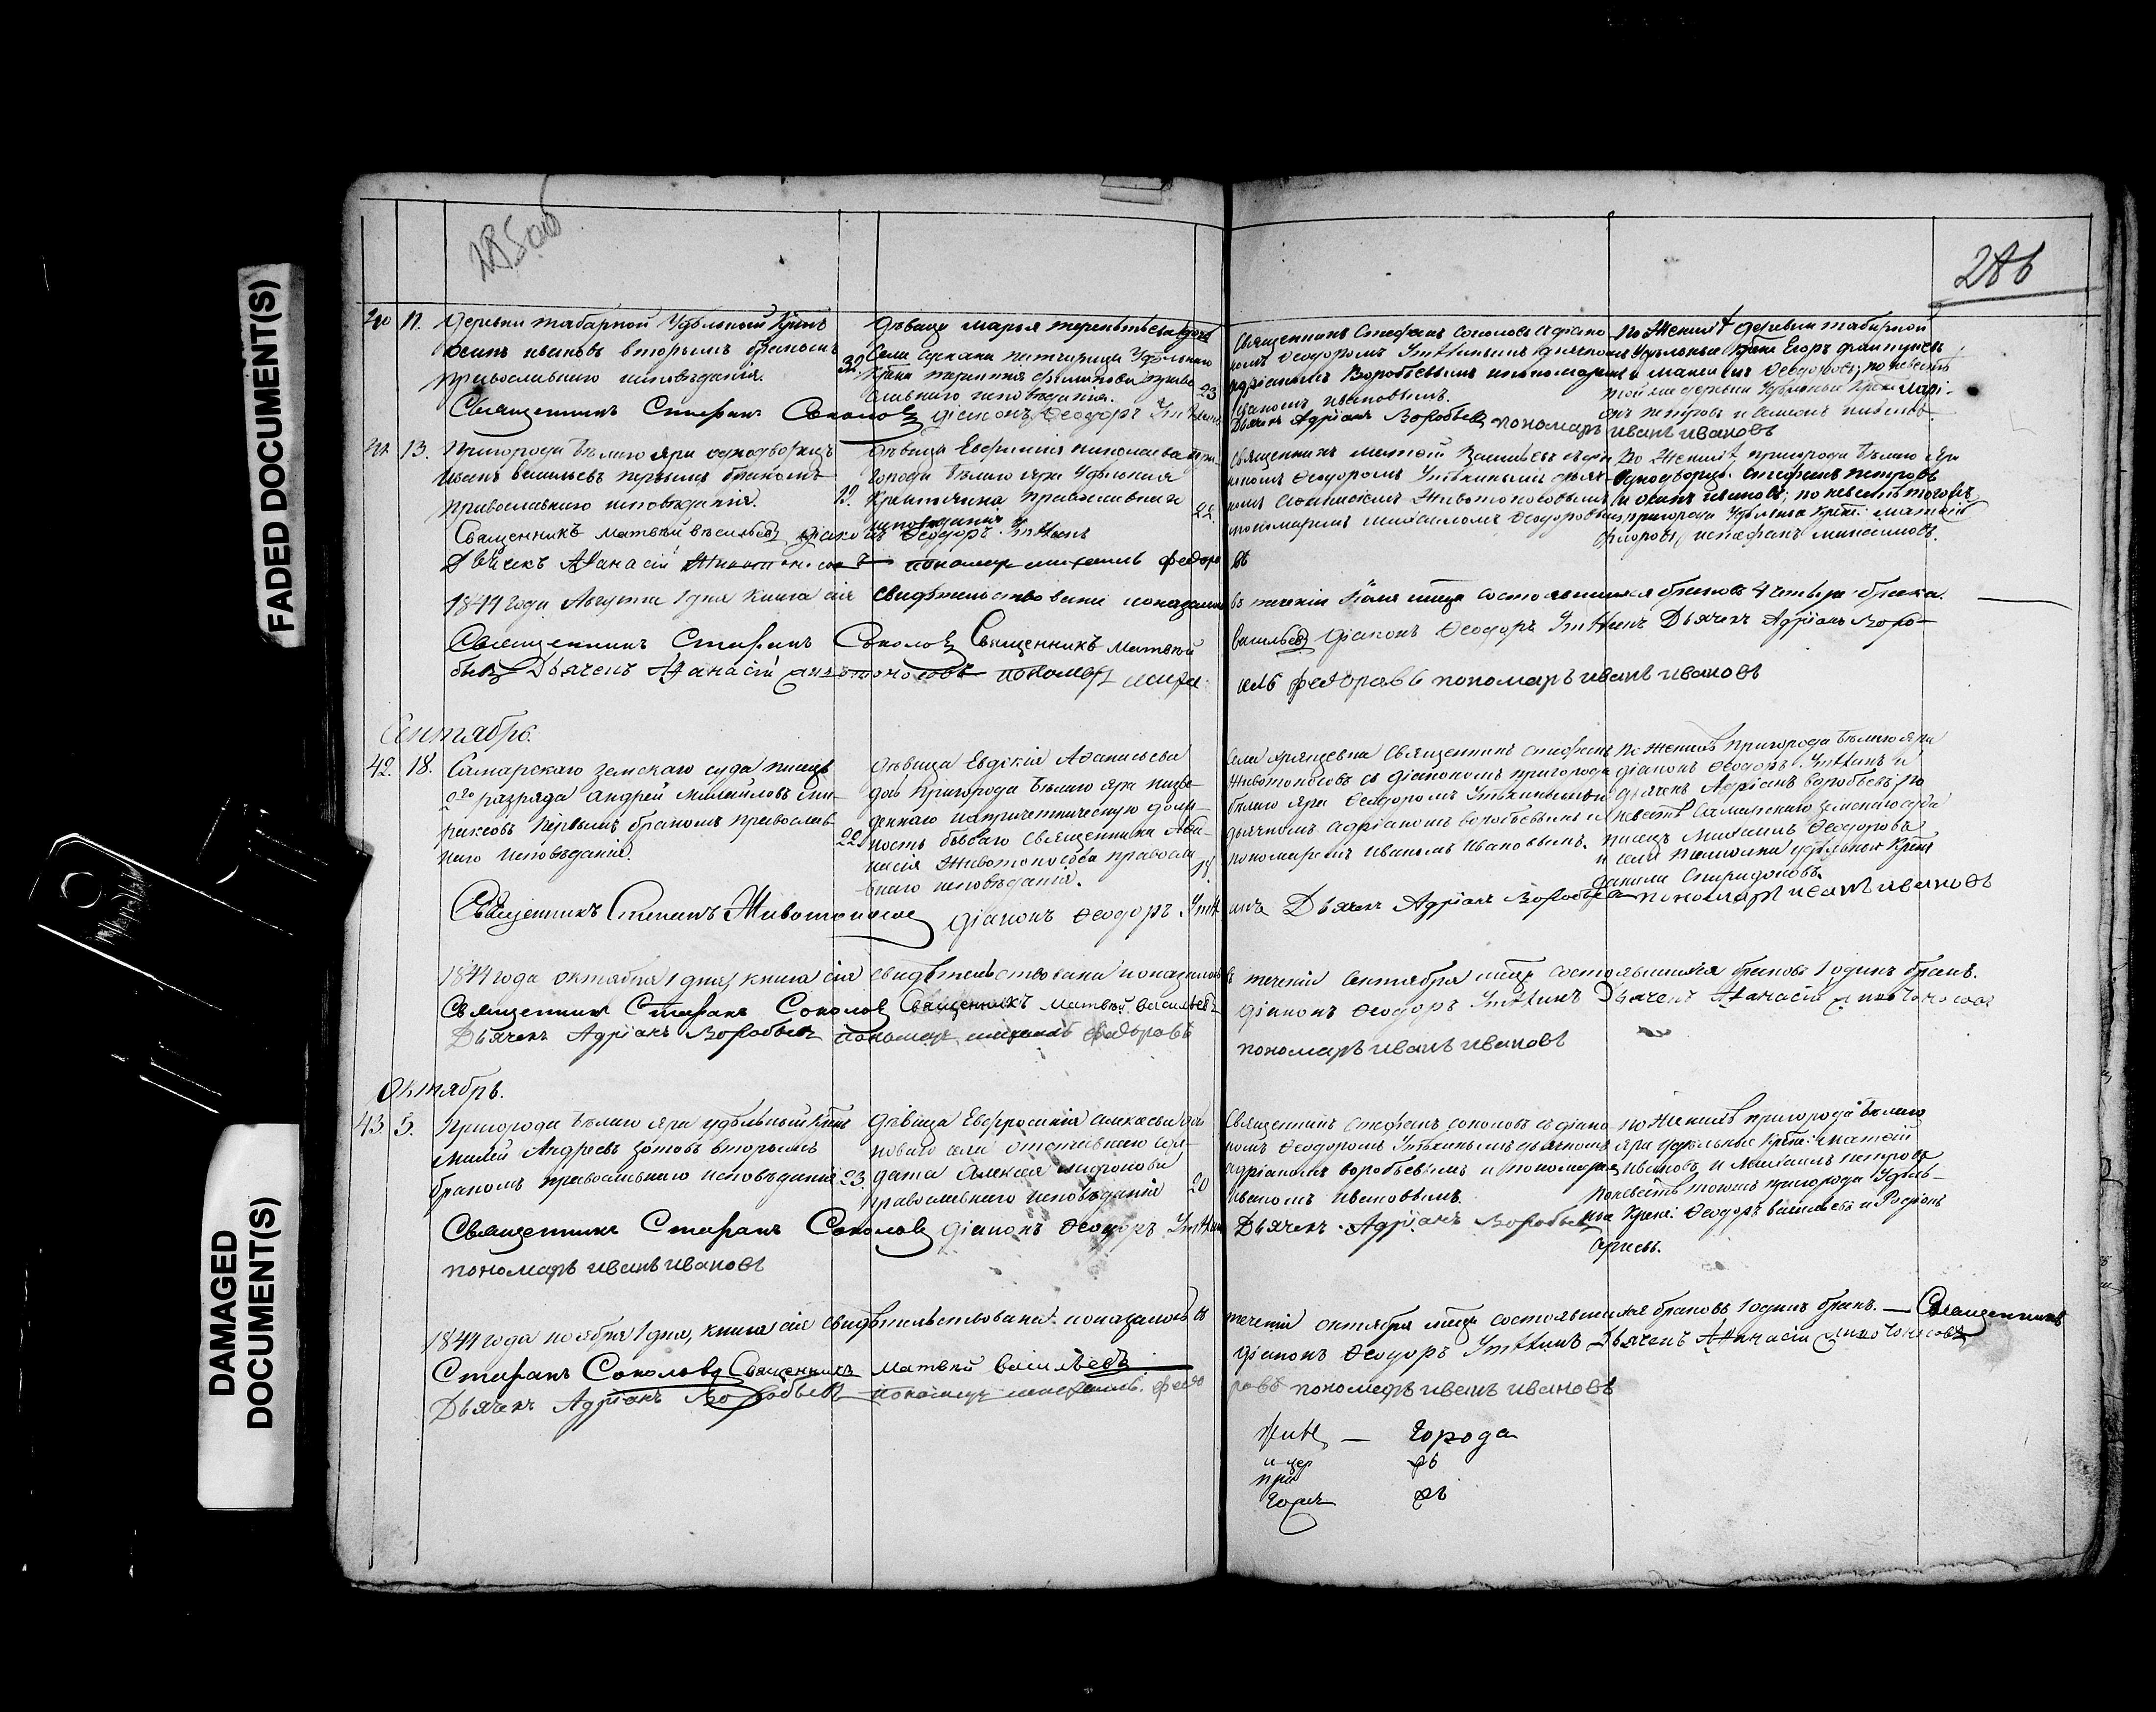 285 об
286
FADED DOCUMENT(S)
DAMAGED
DOCUMENT(S)
40 11. Деревни табарной Удѣльный Крнъ
осипъ ивановъ вторымъ бракомъ
православнаго исповѣданія.
32
дѣвица марья терентьева дочь
Села
Крна терентія филипова право
славнаго исповѣданія.
23
Священникъ Стефанъ соколовъ съ діако
номъ Ѳеодоромъ дьячкомъ
адріаномъ Воробьевымъ и пономаремъ
иваномъ ивановымъ.
По Женихѣ деревни табарной
Удѣльные Крне Егоръ
и Ѳеодоровъ; по невѣстѣ
той же деревни Удѣльные Крне
петровъ и
Священникъ Стефанъ Соколовъ діаконъ Ѳеодоръ
Дьячекъ Адріанъ Воробьевъ пономарь иванъ ивановъ
41 13. Пригорода Бѣлаго яра однодворецъ
васильевъ первымъ бракомъ
православнаго исповѣданія.
19.
дѣвица Евфимия николаева при
города Бѣлаго яра Удѣльная
Крестьянка Православнаго
исповѣданія
22.
Священникъ матѳей Васильевъ съ діа
кономъ Ѳеодоромъ дьяч
комъ Аѳанасіемъ Животоносовымъ
пономаремъ михаиломъ Ѳеодоровымъ
По Женихѣ пригорода Бѣлаго Яра
Однодворцы Стефанъ петровъ
и осипъ ивановъ; по невѣстѣ тогожъ
пригорода Удѣльные Крне: матѳей
и стефанъ максимовъ.
Священникъ матвѣй васильевъ діаконъ Ѳеодоръ
Дьячекъ Аѳанасій Животоносовъ пономарь михаилъ федоровъ
1844 года Августа 1 дня Книга сія свидѣтельствована и показалось въ теченіи Іюля мца состоявшихся браковъ 4 четыре брака.
Священникъ Стефанъ Соколовъ Священникъ матвѣй васильевъ діаконъ Ѳеодоръ Дьячекъ Адріанъ Воро
бьевъ Дьячекъ Аѳанасій Животоносовъ пономарь михаилъ федоровъ пономарь иванъ ивановъ
Сентябрь.
42. 18. Самарскаго земскаго суда писецъ
2го разряда Андрей Михайловъ
первымъ бракомъ православ
наго исповѣданія.
22
дѣвица Евдокія Аѳанасьева
дочь пригорода Бѣлаго яра низве
деннаго на причетническую долж
ность бывшаго Священника Аѳа
насія Животоносова правосла
внаго исповѣданія.
17.
Села Священникъ стефанъ
Животоносовъ съ діакономъ пригорода
бѣлаго яра Ѳеодоромъ
дьячкомъ адріаномъ воробьевымъ и
пономаремъ иваномъ ивановымъ.
По Женихѣ пригорода Бѣлаго яра
діаконъ Ѳеодоръ и
дьячекъ Адріанъ воробьевъ; по
невѣстѣ Самарскаго земскаго суда
писецъ Михаилъ Ѳеодоровъ
и села удѣльной Крне
данила Спиридоновъ
Священникъ Стефанъ Животоносовъ діаконъ Ѳеодоръ Дьячекъ Адріанъ Воробьевъ пономарь иванъ ивановъ
1844 года октября 1 дня, книга сія свидѣтельствована и показалось въ теченіи Сентября мца состоявшихся браковъ 1 одинъ бракъ.
Священникъ Стефанъ Соколовъ Священникъ матвѣй васильевъ діаконъ Ѳеодоръ Дьячекъ Аѳанасій Животоносовъ
Дьячекъ Адріанъ Воробьевъ пономарь михаилъ федоровъ пономарь иванъ ивановъ
Октябрь.
43 5. Пригорода Бѣлаго яра удѣльный Крнъ
Андреевъ зотовъ вторымъ
бракомъ православнаго исповѣданія
23.
дѣвица Евфросинія алексеева
села отставнаго сол
дата Алексея миронова
православнаго исповѣданія
20
Священникъ Стефанъ соколовъ съ діако
номъ Ѳеодоромъ дьячкомъ
адріаномъ воробьевымъ и пономаремъ
иваномъ ивановымъ.
по Женихѣ пригорода Бѣлаго
яра удѣльные Крне: матѳей
ивановъ и Михаилъ петровъ
по невѣстѣ тогожъ пригорода Удѣль
ные Крне: Ѳеодоръ васильевъ и Родіонъ
Священникъ Стефанъ Соколовъ діаконъ Ѳеодоръ Дьячекъ Адріанъ Воробьевъ
пономарь иванъ ивановъ
1844 года ноября 1 дня, книга сія свидѣтельствована и показалось въ теченіи октября мца состоявшихся браковъ 1 одинъ бракъ. — Священникъ
Стефанъ Соколовъ Священникъ матвѣй васильевъ діаконъ Ѳеодоръ Дьячекъ Аѳанасій Животоносовъ
Дьячекъ Адріанъ Воробьевъ пономарь михаилъ федоровъ пономарь иванъ ивановъ
города